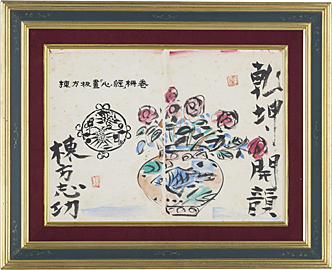 乾坤開韻
棟方板畫心經柵卷
棟方志功